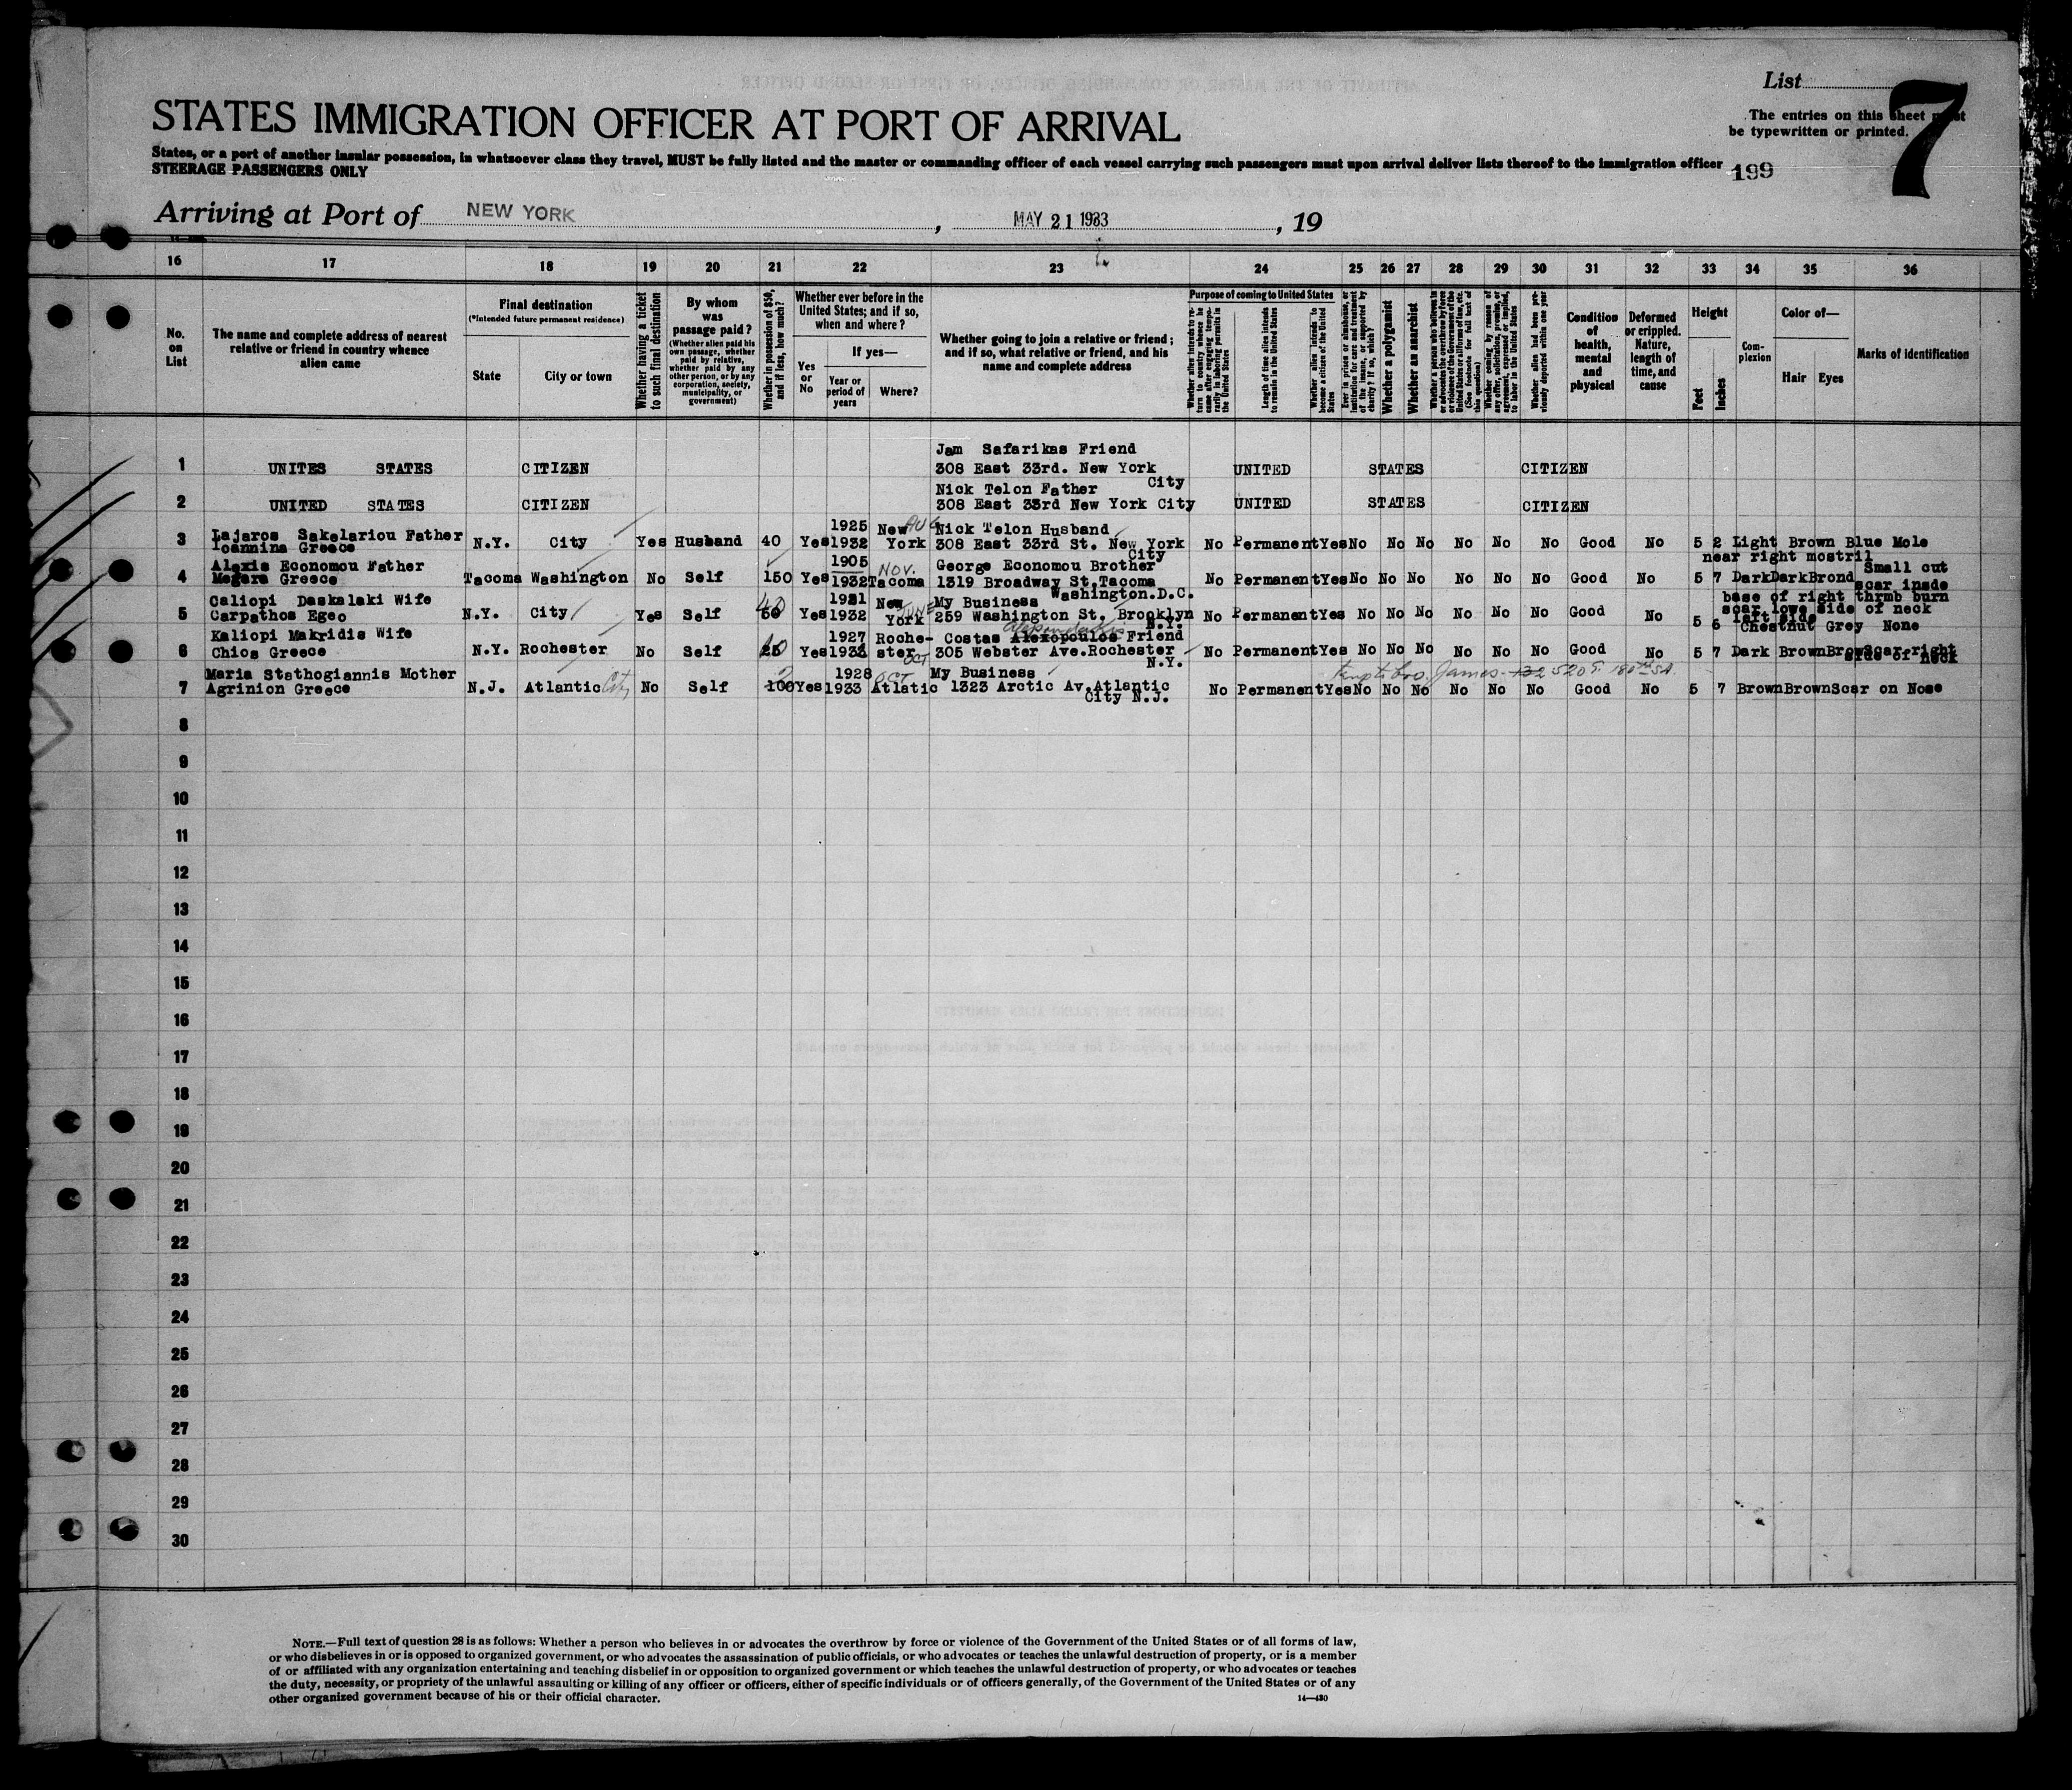 List
7
STATES IMMIGRATION OFFICER AT PORT OF ARRIVAL
The entries on this sheet must
be typewritten or printed.
States, or a port of another insular possession, in whatsoever class they travel, MUST be fully listed and the master or commanding officer of each vessel carrying such passengers must upon arrival deliver lists thereof to the immigration officer
STEERAGE PASSENGERS ONLY
199
Arriving at Port of NEW YORK , MAY 21 1933 , 19
16 17 18 19 20 21 22 23 24 25 26 27 28 29 30 31 32 33 34 35 36
No. on List
The name and complete address of nearest relative or friend in country whence alien came
Final destination
(*Intended future permanent residence)
State
City or town
Whether having a ticket to such final destination
By whom was passage paid?
(Whether alien paid his own passage, whether paid by relative, whether paid by any other person, or by any corporation, society, municipality, or government)
Whether in possession of $50, and if less, how much?
Whether ever before in the United States; and if so, when and where?
If yes—
Yes or No
Year or period of years
Where?
Whether going to join a relative or friend; and if so, what relative or friend, and his name and complete address
Purpose of coming to United States
Whether alien intends to return to country whence he came after engaging temporarily in laboring pursuits in the United States
Length of time alien intends to remain in the United States
Whether alien intends to become a citizen of the United States
Ever in prison or almshouse, or institution for care and treatment of the insane, or supported by charity? If so, which?
Whether a polygamist
Whether an anarchist
Whether a person who believes in or advocates the overthrow by force or violence of the Government of the United States or all forms of law, etc. (See footnote for full text of this question)
Whether coming by reason of any offer, solicitation, promise, or agreement, expressed or implied, to labor in the United States
Whether alien had been previously deported within one year
Condition of health, mental and physical
Deformed or crippled. Nature, length of time, and cause
Height
Feet
Inches
Complexion
Color of—
Hair
Eyes
Marks of identification
1 UNITES STATES CITIZEN Jam Safarikas Friend 308 East 33rd. New York City UNITED STATES CITIZEN
2 UNITED STATES CITIZEN Nick Telon Father 308 East 33rd New York City UNITED STATES CITIZEN
3 Lajaros Sakelariou Father Ioannina Greece N.Y. City Yes Husband 40 Yes 1925 1932 New York AUG Nick Telon Husband 308 East 33rd St. New York City No Permanent Yes No No No No No No Good No 5 2 Light Brown Blue Mole near right mostril
4 Alexis Economou Father Megara Greece Tacoma Washington No Self 150 Yes 1905 1932 NOV. Tacoma George Economou Brother 1319 Broadway St, Tacoma Washington.D.C. No Permanent Yes No No No No No No Good No 5 7 Dark Dark Brond Small cut scar inside base of right thrmb burn
5 Caliopi Daskalaki Wife Carpathos Egeo N.Y. City Yes Self 50 40 Yes 1921 1932 New York JUNE My Business 259 Washington St, Brooklyn N.Y. No Permanent Yes No No No No No No Good No 5 6 Chestnut Grey None scar lowe side of neck left side
6 Kaliopi Makridis Wife Chios Greece N.Y. Rochester No Self 25 Yes 1927 1932 Roche-ster OCT Costas Alexopoulos Friend 305 Webster Ave.Rochester N.Y. No Permanent Yes No No No No No No Good No 5 7 Dark Brown Brow Scar right side of neck
7 Maria Stathogiannis Mother Agrinion Greece N.J. Atlantic City No Self 100 Yes 1928 1933 OCT Atlatic My Business 1323 Arctic Av.Atlantic City N.J. No Permanent Yes No No No No No No Good No 5 7 Brown Brown Scar on Nose
8
9
10
11
12
13
14
15
16
17
18
19
20
21
22
23
24
25
26
27
28
29
30
NOTE.—Full text of question 28 is as follows: Whether a person who believes in or advocates the overthrow by force or violence of the Government of the United States or of all forms of law,
or who disbelieves in or is opposed to organized government, or who advocates the assassination of public officials, or who advocates or teaches the unlawful destruction of property, or is a member
of or affiliated with any organization entertaining and teaching disbelief in or opposition to organized government or which teaches the unlawful destruction of property, or who advocates or teaches
the duty, necessity, or propriety of the unlawful assaulting or killing of any officer or officers, either of specific individuals or of officers generally, of the Government of the United States or of any
other organized government because of his or their official character.
14—430